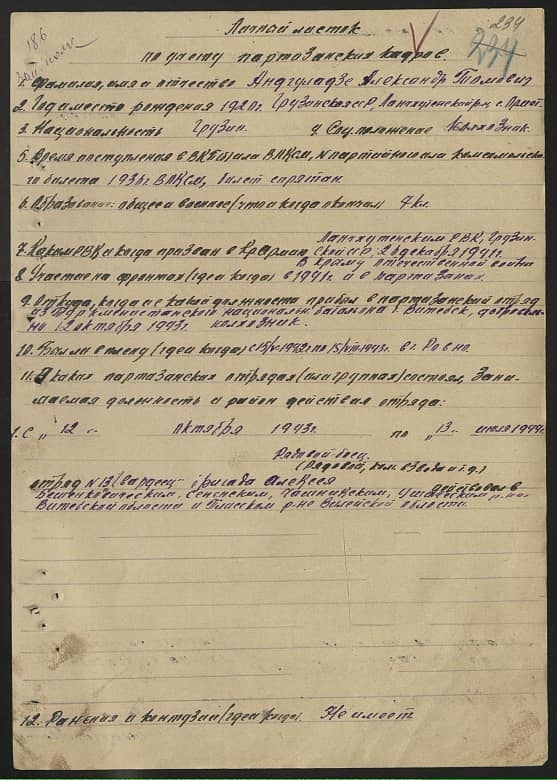 186
234
Зап. полк
234
Личный листок
по учету партизанских кадров.
1. Фамилия, имя и отчество Андгуладзе Александр Томович
2. Год и место рождения 1920г. Грузинская ССР, Ланчхутский р, с.
3. Национальность Грузин. 4. Соц. положение Колхозник.
5. Время поступления в ВКП(б) или ВЛКСМ, № партийного или комсомольско-
го билета 1936г. ВЛКСМ, билет спрятан.
6. Образование: общее и военное (что и когда окончил) 7 кл.
Ланчхутенским РВК, Грузин.
7. Каким РВК и когда призван в Кр. Армию ской ССР, декабря 1941г.
В Крыму Отечественной войны
8. Участие на фронтах (где и когда) в 1941г. и в партизанах.
9. Откуда, когда и с какой должности прибыл в партизанский отряд
из Туркменистанского национальн. батальона г. Витебск, доброволь-
но 12 октября 1943г. колхозник.
10. Был ли в плену (где и когда) с 15/V-1942г. по 15/VIII-1943г. в г. Ровно.
11. В каких партизанских отрядах (или группах) состоял, зани-
маемая должность и район действия отряда:
1. С „12" октября 1943г. по „13" июля 1944г.
Рядовой-боец.
(Рядовой, ком. взвода и т.д.)
отряд №13 бригада Алексея действовал в
Бешенковическим, Сенненским, Чашникским, Ушачским р-нах
Витебской области и р-не Вилейской области.
12. Ранения и контузии (где и когда). Не имеет